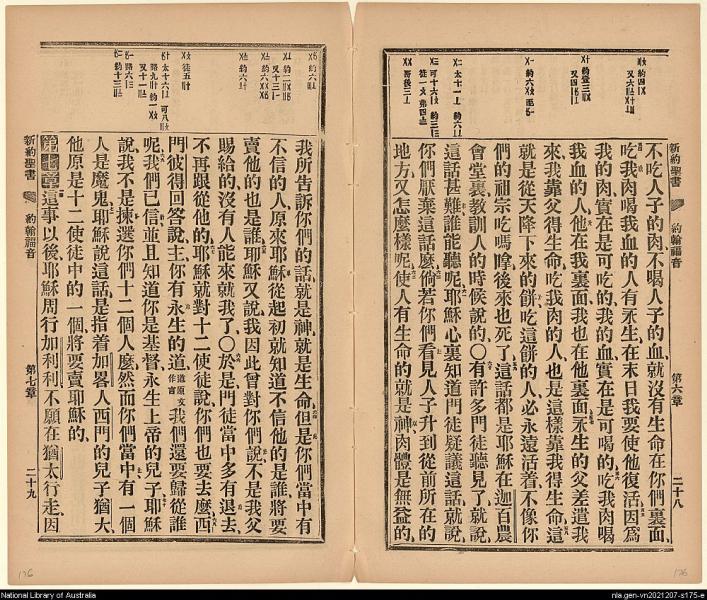 新約聖書
約翰福音
第六章
二十八
不吃人子的肉不喝人子的血就沒有生命在你們裏面
吃我肉喝我血的人有永生在末日我要使他復活因爲
我的肉實在是可吃的我的血實在是可喝的吃我肉喝
我血的人他在我裏面我也在他裏面永生的父差遣我
來我靠父得生命吃我肉的人也是這樣靠我得生命這
就是從天降下來的餅吃這餅的人必永遠活着不像你
們的祖宗吃嗎嗱後來也死了這話都是耶穌在迦百農
會堂裏教訓人的時候說的〇有許多門徒聽見了就說
這話甚難誰能聽呢耶穌心裏知道門徒疑議這話就說
你們厭棄這話麼倘若你們看見人子升到從前所在的
地方又怎麼樣呢使人有生命的就是神肉體是無益的
我所告訴你們的話就是神就是生命但是你們當中有
不信的人原來耶穌從起初就知道不信他的是誰將要
賣他的也是誰耶穌又說我因此曾對你們說不是我父
賜給的沒有人能來就我了〇於是門徒當中多有退去
不再跟從他的耶穌就對十二使徒說你們也要去麼西
門彼得回答說主你有永生的道道原文作言我們還要歸從誰
呢我們已信並且知道你是基督永生上帝的兒子耶穌
說我不是揀選你們十二個人麼然而你們當中有一個
人是魔鬼耶穌說這話是指着加畧人西門的兒子猶大
他原是十二使徒中的一個將要賣耶穌的
第七章這事以後耶穌周行加利利不願在猶太行走因
新約聖書
約翰福音
第七章
二十九
176
176
National Library of Australia
nla.gen-vn2021207-s175-e